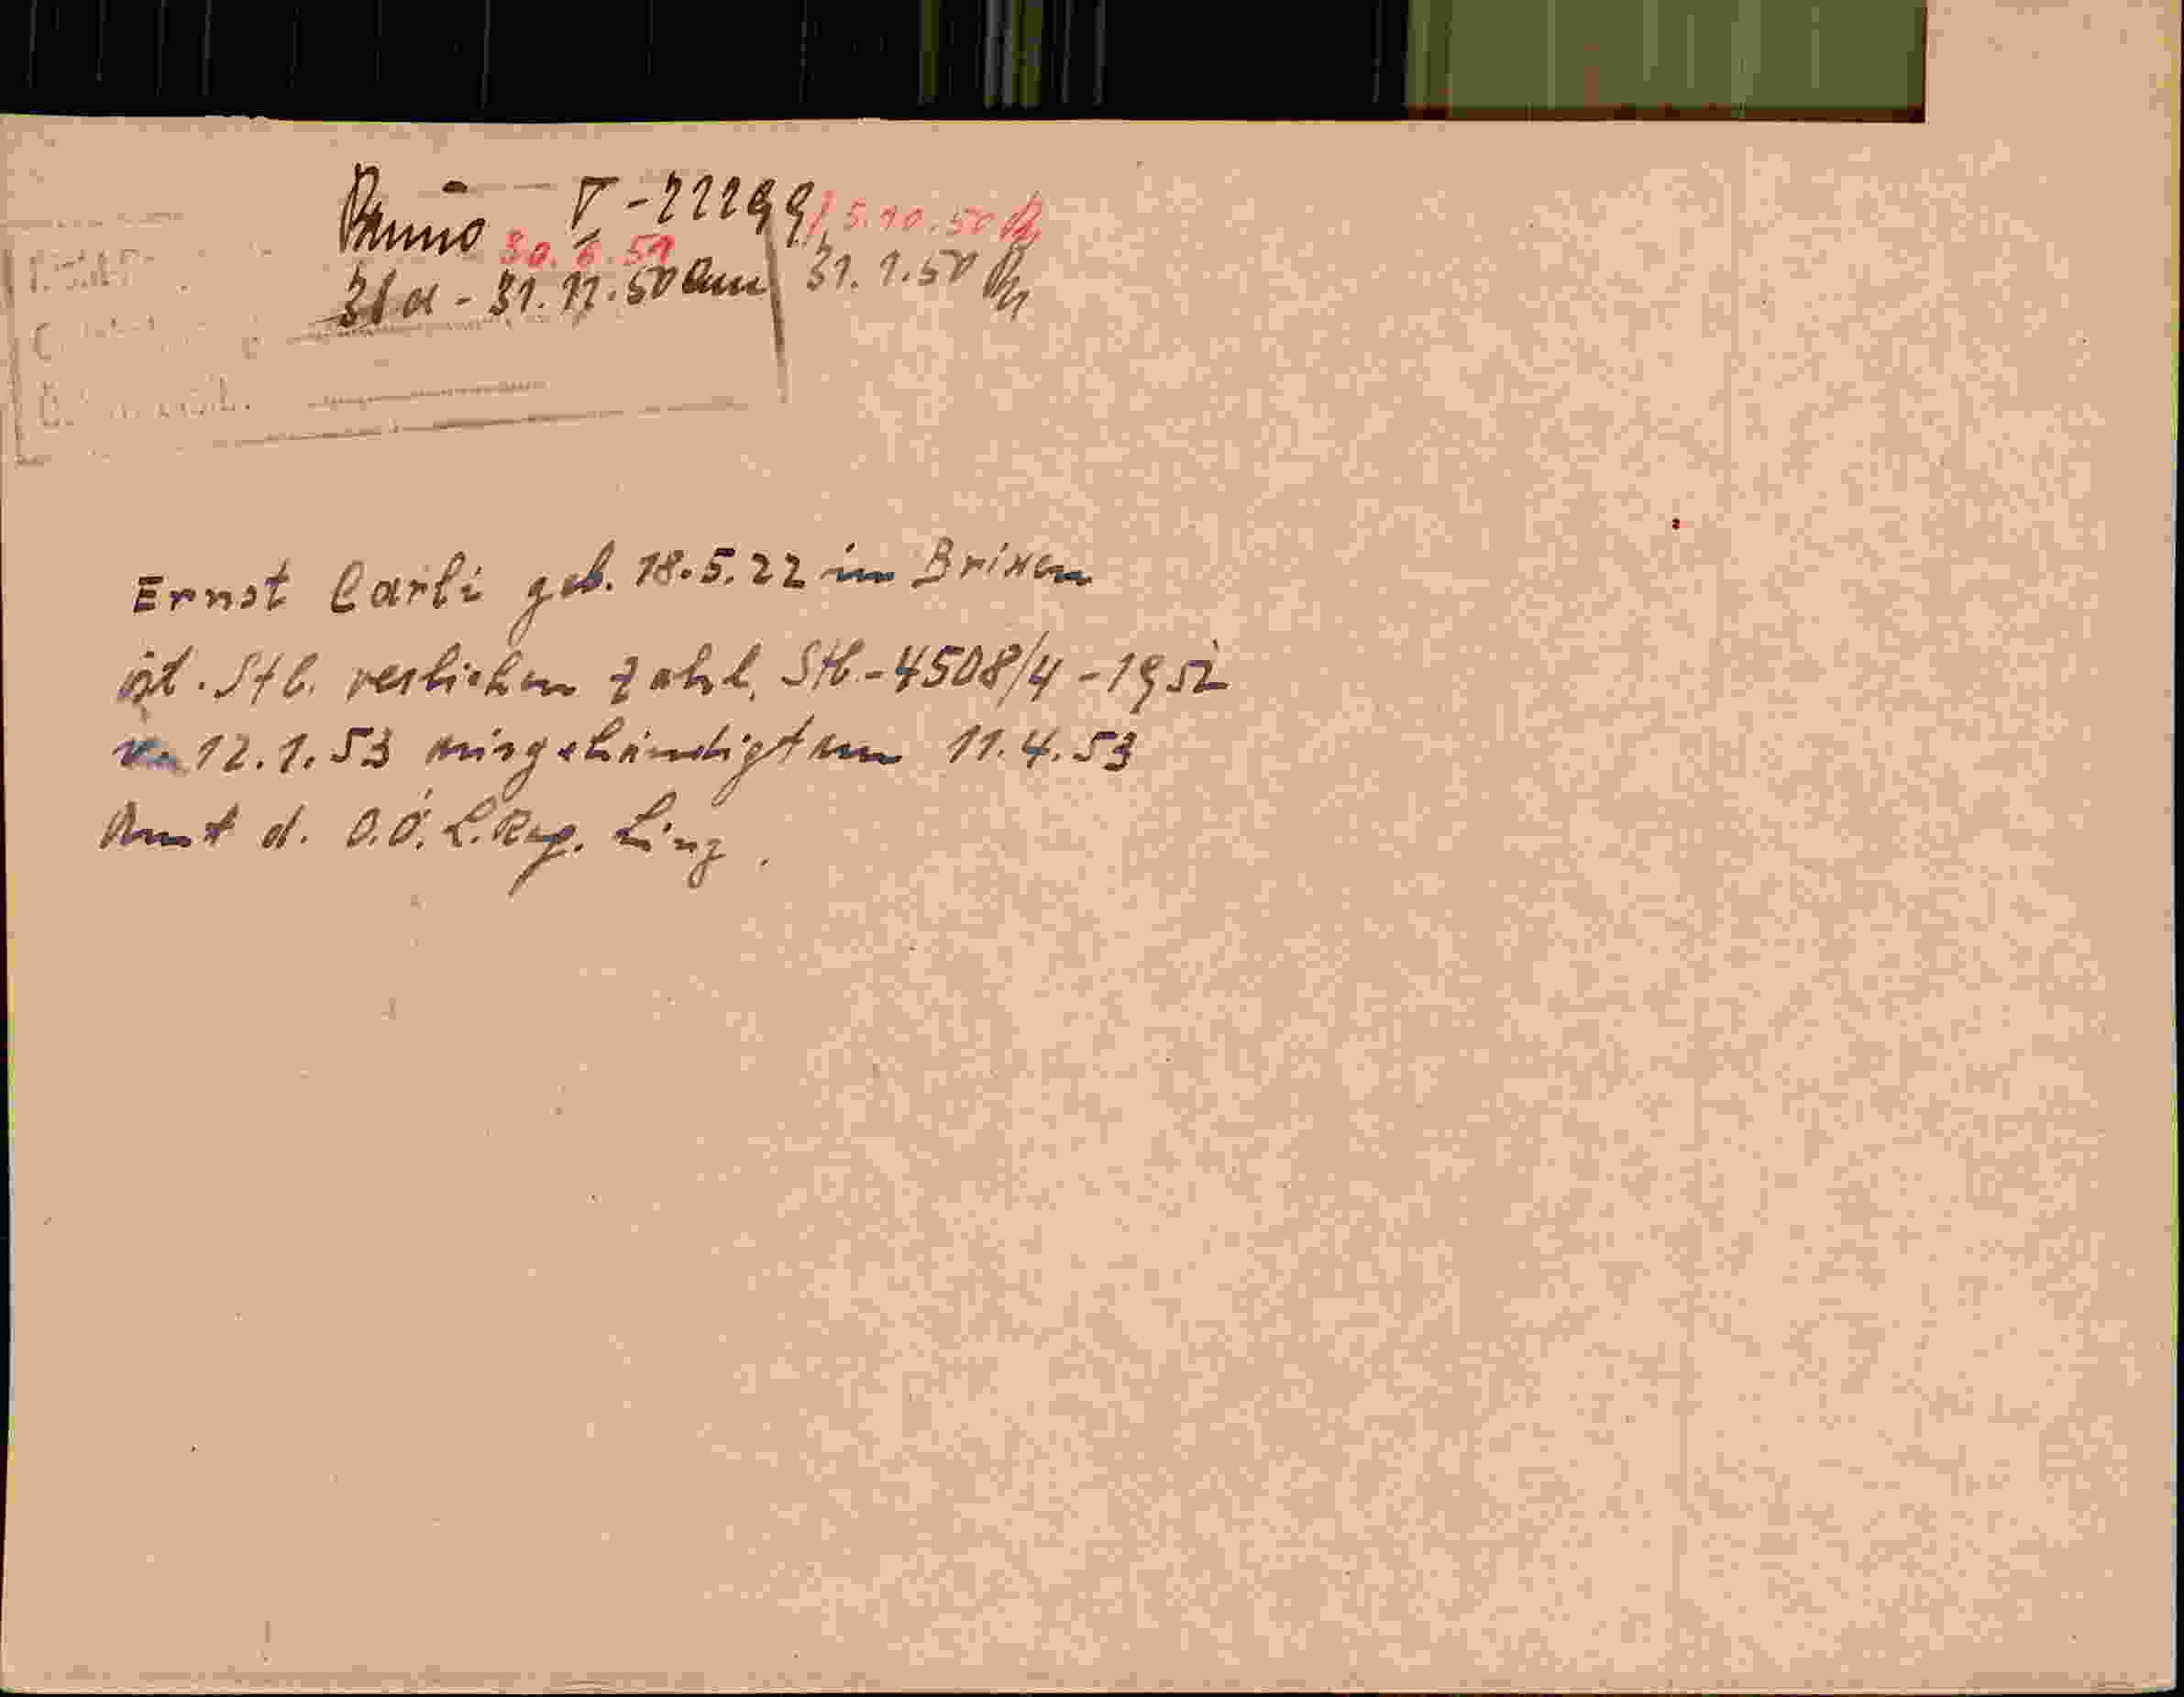 V-22299 / 5.10.50
30.6.51
31.12.50 31.1.50
Ernst Carli geb. 18.5.22 in Brixen
öst. Stb. verliehen Zahl, Stb.-4508/4-1952
v. 12.1.53 ausgehändigt am 11.4.53
Amt d. O.Ö. L.Reg. Linz.